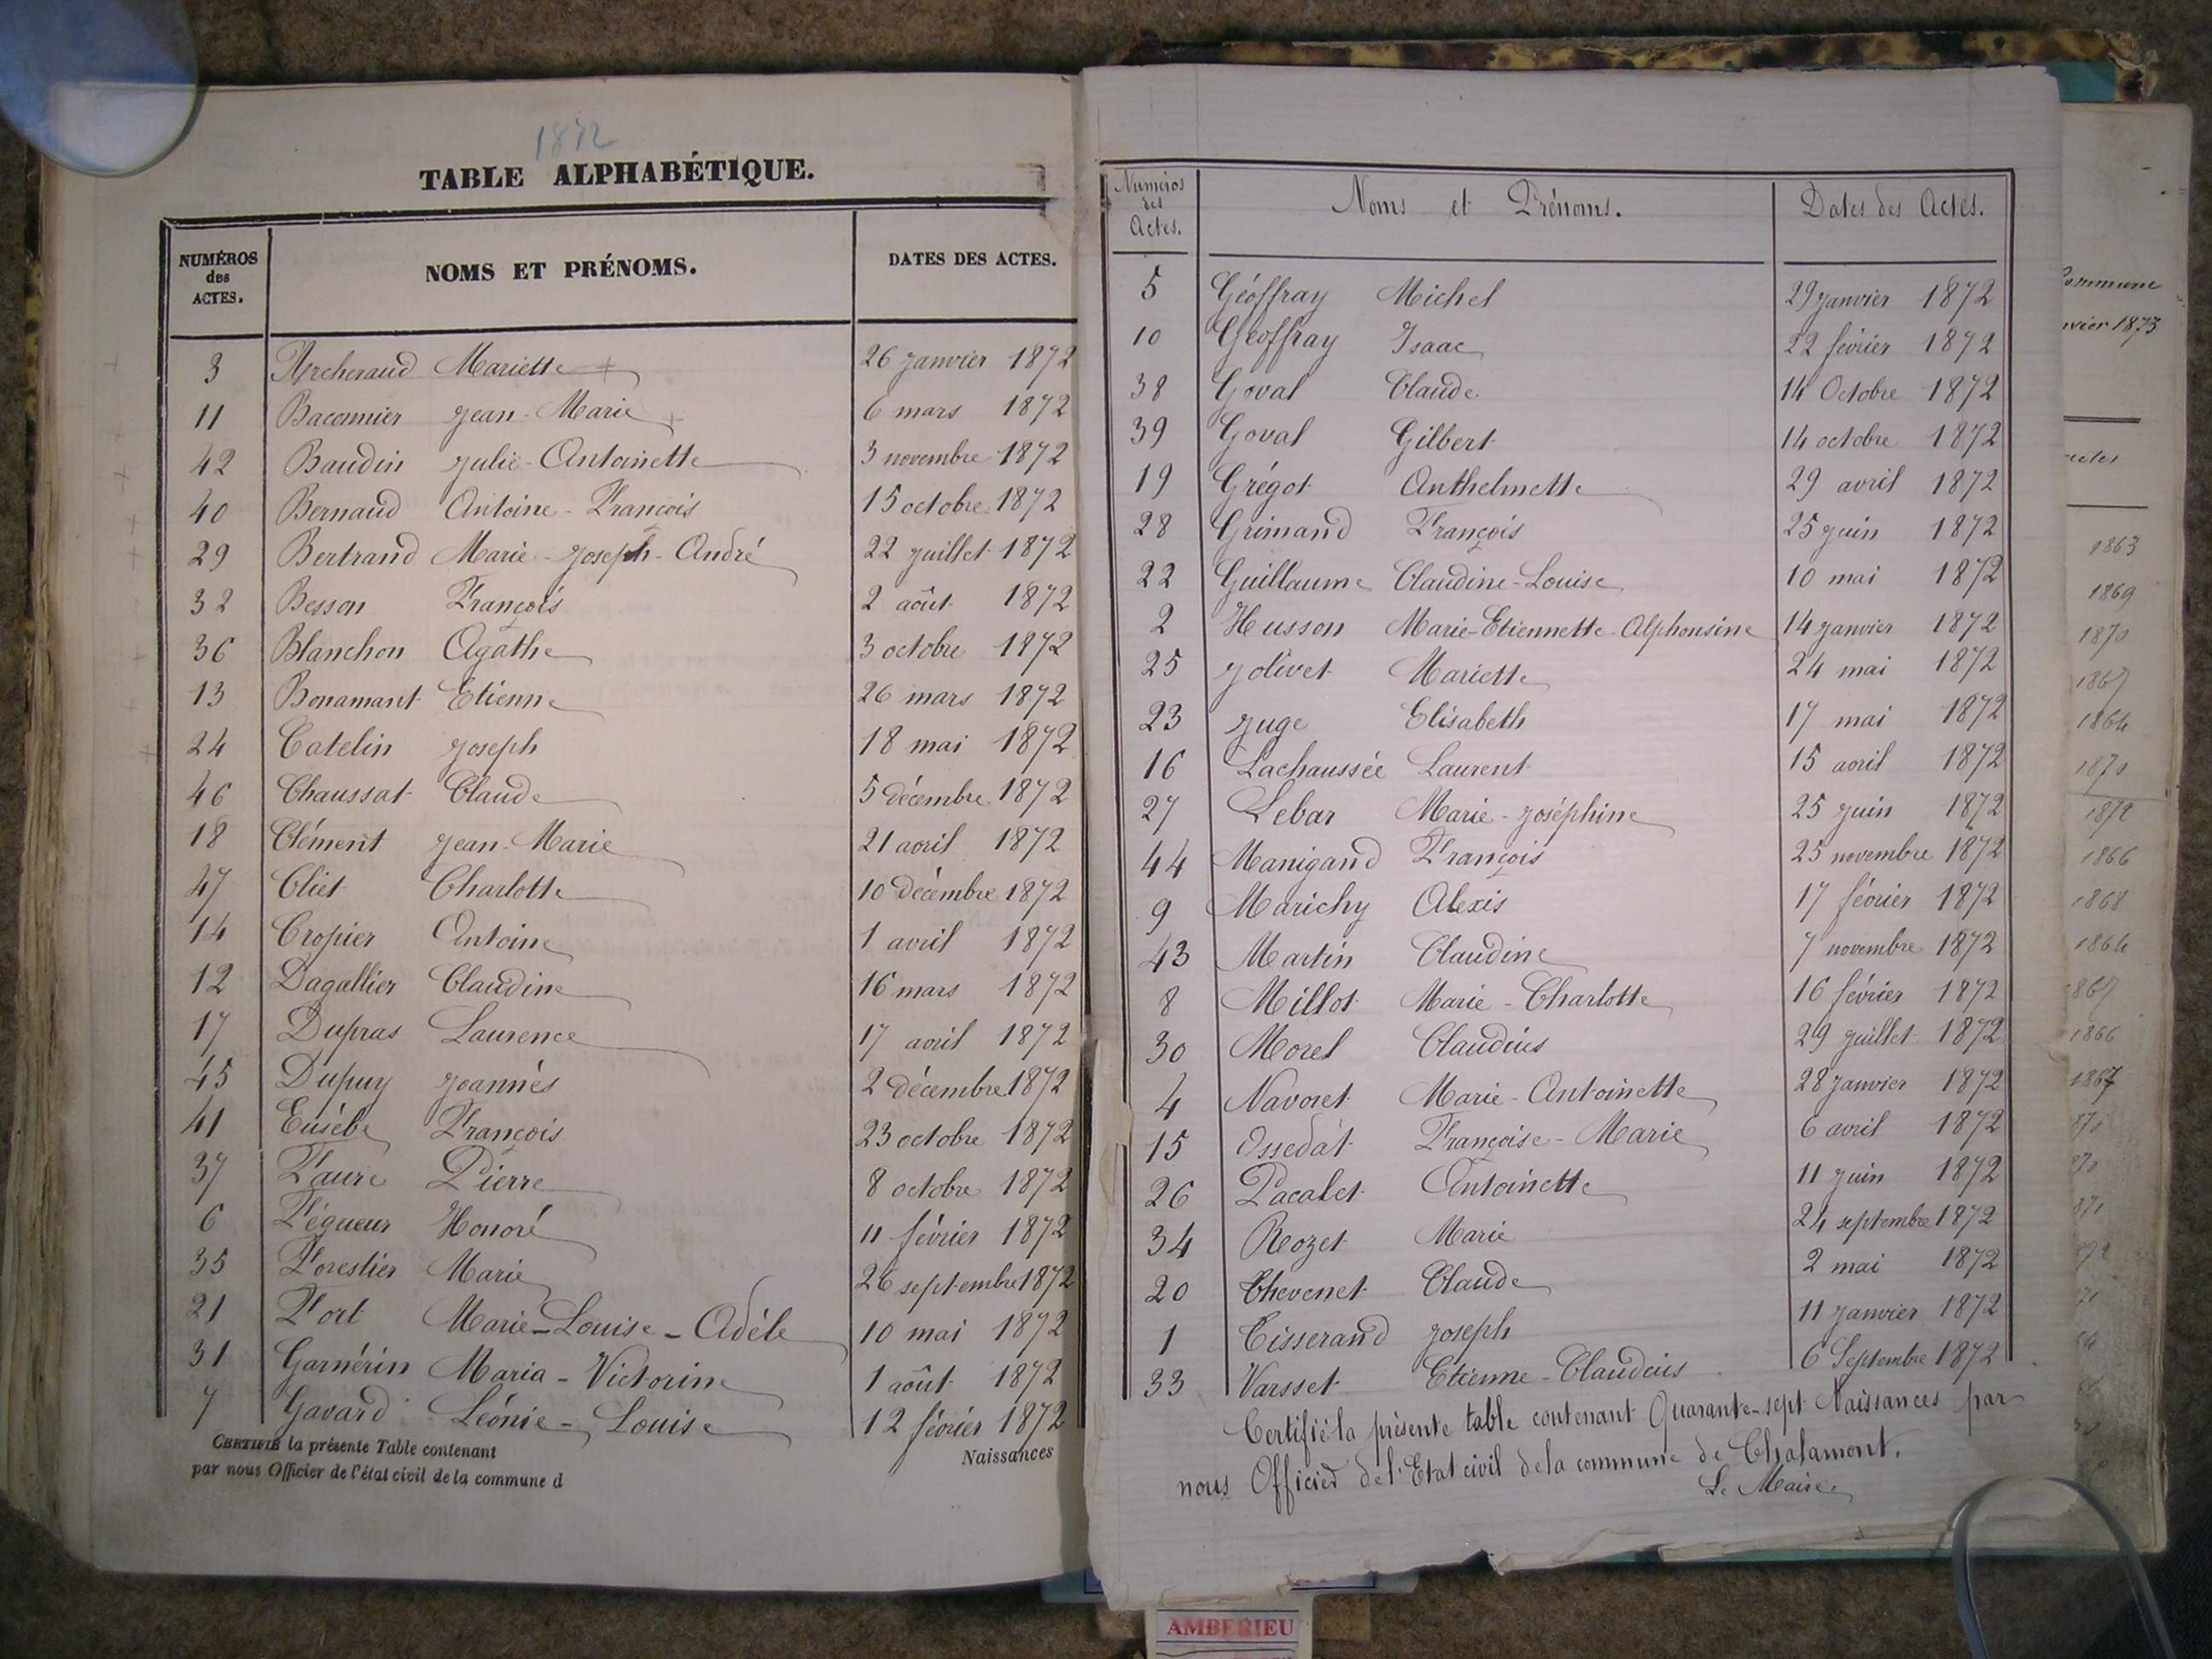 1872
TABLE ALPHABÉTIQUE.
NUMÉROS des ACTES. NOMS ET PRÉNOMS. DATES DES ACTES.
3 Archeraud Mariette 26 janvier 1872
11 Baconnier Jean-Marie 6 mars 1872
42 Baudin Julie-Antoinette 3 novembre 1872
40 Bernaud Antoine-François 15 octobre 1872
29 Bertrand Marie-Joseph-André 22 juillet 1872
32 Besson François 2 août 1872
36 Blanchon Agathe 3 octobre 1872
13 Bonamant Etienne 26 mars 1872
24 Catelin Joseph 18 mai 1872
46 Chaussat Claude 5 décembre 1872
18 Clément Jean-Marie 21 avril 1872
47 Cliet Charlotte 10 décembre 1872
14 Cropier Antoine 1 avril 1872
12 Dagallier Claudine 16 mars 1872
17 Dupras Laurence 17 avril 1872
45 Dupuy Joannès 2 décembre 1872
41 Eusèbe François 23 octobre 1872
37 Faure Pierre 8 octobre 1872
6 Fégueur Honoré 11 février 1872
35 Forestier Marie 26 septembre 1872
21 Fort Marie-Louise-Adèle 10 mai 1872
31 Garnérin Maria-Victorine 1 août 1872
7 Gavard Léonie-Louise 12 février 1872
CERTIFIÉ la présente Table contenant Naissances
par nous Officier de l'état civil de la commune d
Numéros des Actes. Noms et Prénoms. Dates des Actes.
5 Géoffray Michel 29 janvier 1872
10 Géoffray Isaac 22 février 1872
38 Goval Claude 14 Octobre 1872
39 Goval Gilbert 14 octobre 1872
19 Grégot Anthelmette 29 avril 1872
28 Grimand François 25 juin 1872
22 Guillaume Claudine-Louise 10 mai 1872
2 Husson Marie-Etiennette-Alphonsine 14 janvier 1872
25 Jolivet Mariette 24 mai 1872
23 Juge Elisabeth 17 mai 1872
16 Lachaussée Laurent 15 avril 1872
27 Lebar Marie-Joséphine 25 juin 1872
44 Manigand François 25 novembre 1872
9 Marichy Alexis 17 février 1872
43 Martin Claudine 7 novembre 1872
8 Millot Marie-Charlotte 16 février 1872
30 Morel Claudius 29 juillet 1872
4 Navoret Marie-Antoinette 28 janvier 1872
15 Ossedat Françoise-Marie 6 avril 1872
26 Pacalet Antoinette 11 juin 1872
34 Rozet Marie 24 septembre 1872
20 Thevenet Claude 2 mai 1872
1 Tisserand Joseph 11 janvier 1872
33 Varsset Etienne-Claudius 6 Septembre 1872
Certifié la présente table contenant Quarante-sept Naissances par
nous Officier de l'Etat civil de la commune de Chalamont.
Le Maire
Commune
nvier 1873
1863
1869
1870
1867
1864
1870
1872
1866
1868
1864
1866
1867
AMBERIEU